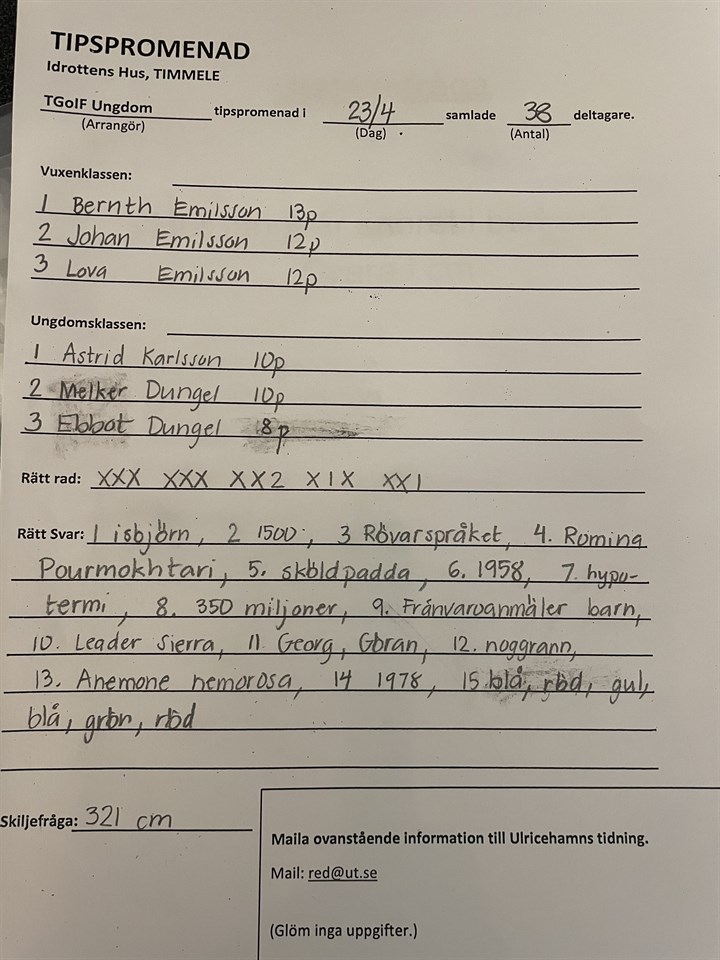 TIPSPROMENAD
Idrottens Hus, TIMMELE
TGoIF Ungdom tipspromenad i 23/4 samlade 38 deltagare.
(Arrangör) (Dag) (Antal)
Vuxenklassen:
1 Bernth Emilsson 13p
2 Johan Emilsson 12p
3 Lova Emilsson 12p
Ungdomsklassen:
1 Astrid Karlsson 10p
2 Melker Dungel 10p
3 Ebbot Dungel 8p
Rätt rad: XXX XXX XX2 X1X XX1
Rätt Svar: 1 isbjörn, 2 1500, 3 Rövarspråket, 4. Romina
Pourmokhtari, 5. sköldpadda, 6. 1958, 7. hypo-
termi, 8. 350 miljoner, 9. Frånvaroanmäler barn,
10. Leader Sierra, 11. Georg, Göran, 12. noggrann,
13. Anemone nemorosa, 14 1978, 15 blå, röd, gul,
blå, grön, röd
Skiljefråga: 321 cm
Maila ovanstående information till Ulricehamns tidning.
Mail: red@ut.se
(Glöm inga uppgifter.)